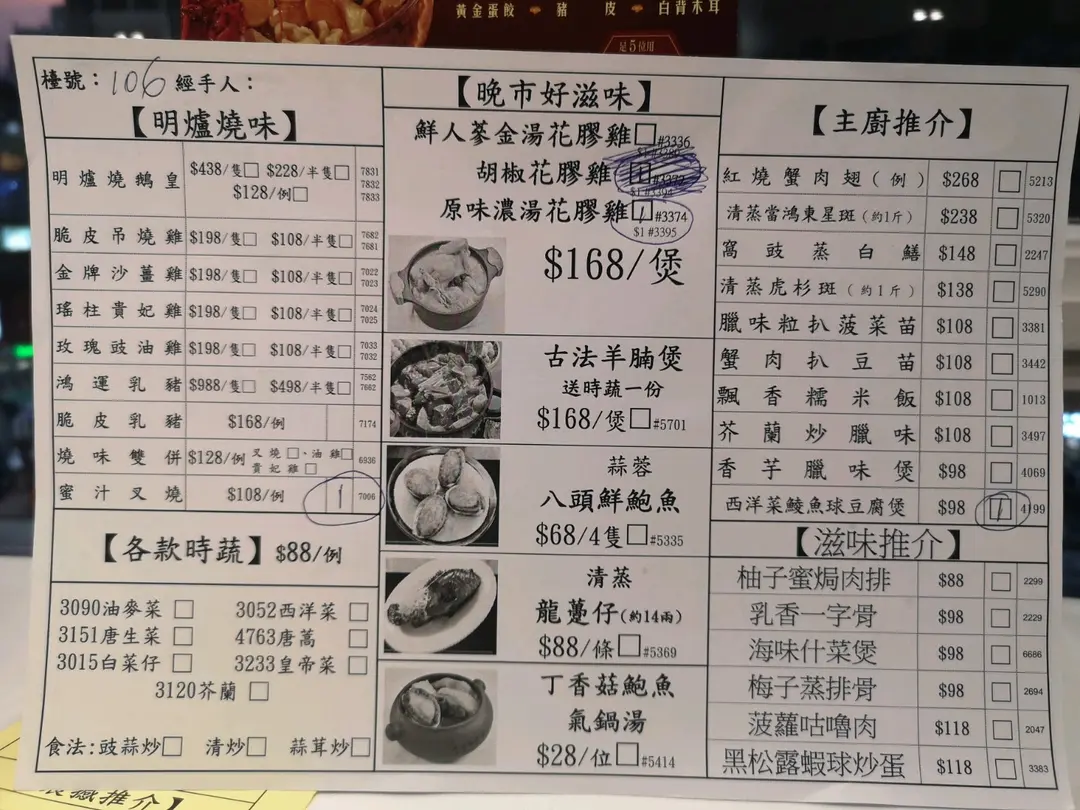 黃金蛋餃 豬皮 白背木耳
足5位用
檯號：106 經手人：
【明爐燒味】
明爐燒鵝皇 $438/隻□ $228/半隻□ $128/例□ 7831 7832 7833
脆皮吊燒雞 $198/隻□ $108/半隻□ 7682 7681
金牌沙薑雞 $198/隻□ $108/半隻□ 7022 7023
瑤柱貴妃雞 $198/隻□ $108/半隻□ 7024 7025
玫瑰豉油雞 $198/隻□ $108/半隻□ 7033 7032
鴻運乳豬 $988/隻□ $498/半隻□ 7562 7662
脆皮乳豬 $168/例 7174
燒味雙併 $128/例 叉燒□、油雞□ 貴妃雞□ 6936
蜜汁叉燒 $108/例 1 7006
【各款時蔬】$88/例
3090油麥菜 □ 3052西洋菜 □
3151唐生菜 □ 4763唐萵 □
3015白菜仔 □ 3233皇帝菜 □
3120芥蘭 □
食法：豉蒜炒□ 清炒□ 蒜茸炒□
【晚市好滋味】
鮮人蔘金湯花膠雞□#3336
胡椒花膠雞
原味濃湯花膠雞□ 1 #3374
$1 #3395
$168/煲
古法羊腩煲
送時蔬一份
$168/煲□#5701
蒜蓉
八頭鮮鮑魚
$68/4隻□#5335
清蒸
龍躉仔(約14兩)
$88/條□#5369
丁香菇鮑魚
氣鍋湯
$28/位□#5414
【主廚推介】
紅燒蟹肉翅(例) $268 □ 5213
清蒸當鴻東星斑(約1斤) $238 □ 5320
窩豉蒸白鱔 $148 □ 2247
清蒸虎杉斑(約1斤) $138 □ 5290
臘味粒扒菠菜苗 $108 □ 3381
蟹肉扒豆苗 $108 □ 3442
飄香糯米飯 $108 □ 1013
芥蘭炒臘味 $108 □ 3497
香芋臘味煲 $98 □ 4069
西洋菜鯪魚球豆腐煲 $98 □ 1 4199
【滋味推介】
柚子蜜焗肉排 $88 □ 2299
乳香一字骨 $98 □ 2229
海味什菜煲 $98 □ 6686
梅子蒸排骨 $98 □ 2694
菠蘿咕嚕肉 $118 □ 2047
黑松露蝦球炒蛋 $118 □ 3383
推介】